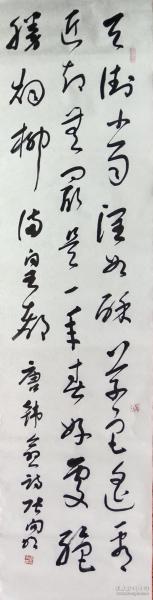 天街小雨润如酥草色遥看
近却无最是一年春好处绝
胜烟柳满皇都 唐韩愈诗